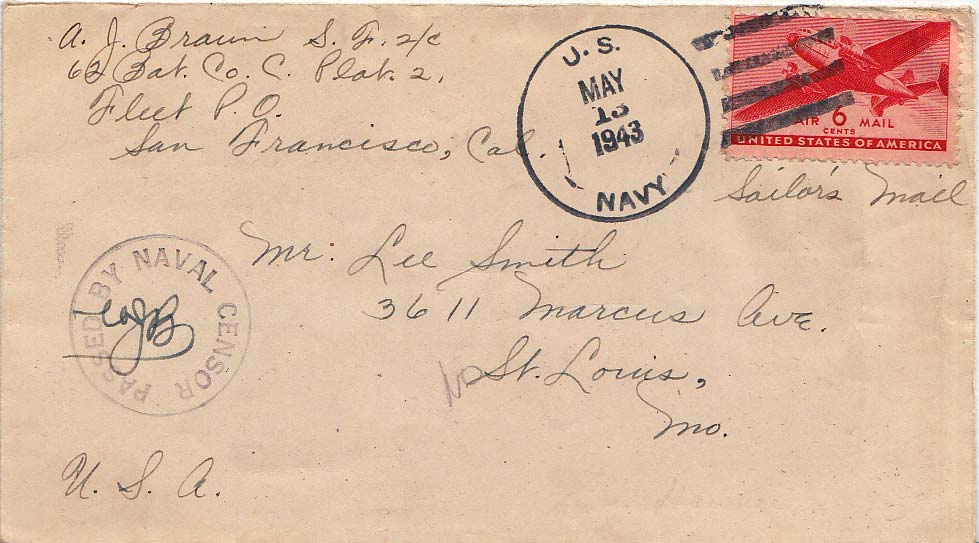 A. J. Braun S. F. 2/c
62 Bat. Co. C. Plat. 2.
Fleet P. O.
San Francisco, Cal.
U. S.
MAY
13
1943
NAVY
AIR 6 MAIL
CENTS
UNITED STATES OF AMERICA
Sailor's Mail
PASSED BY NAVAL CENSOR
Mr. Lee Smith
3611 Marcus Ave.
St. Louis,
Mo.
U. S. A.